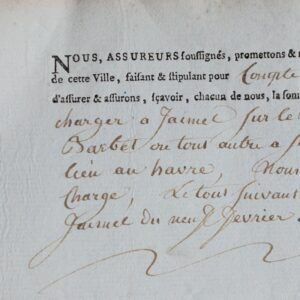 NOUS, ASSUREURS soussignés, promettons &
de cette Ville, faisant & stipulant pour Compte
d'assurer & assurons, sçavoir, chacun de nous, la som
charger a Jaimel sur le
Barbet ou tous autre a
lieu au havre, Nous
Charge, Le tous suivant
Jaimel du neuf fevrier